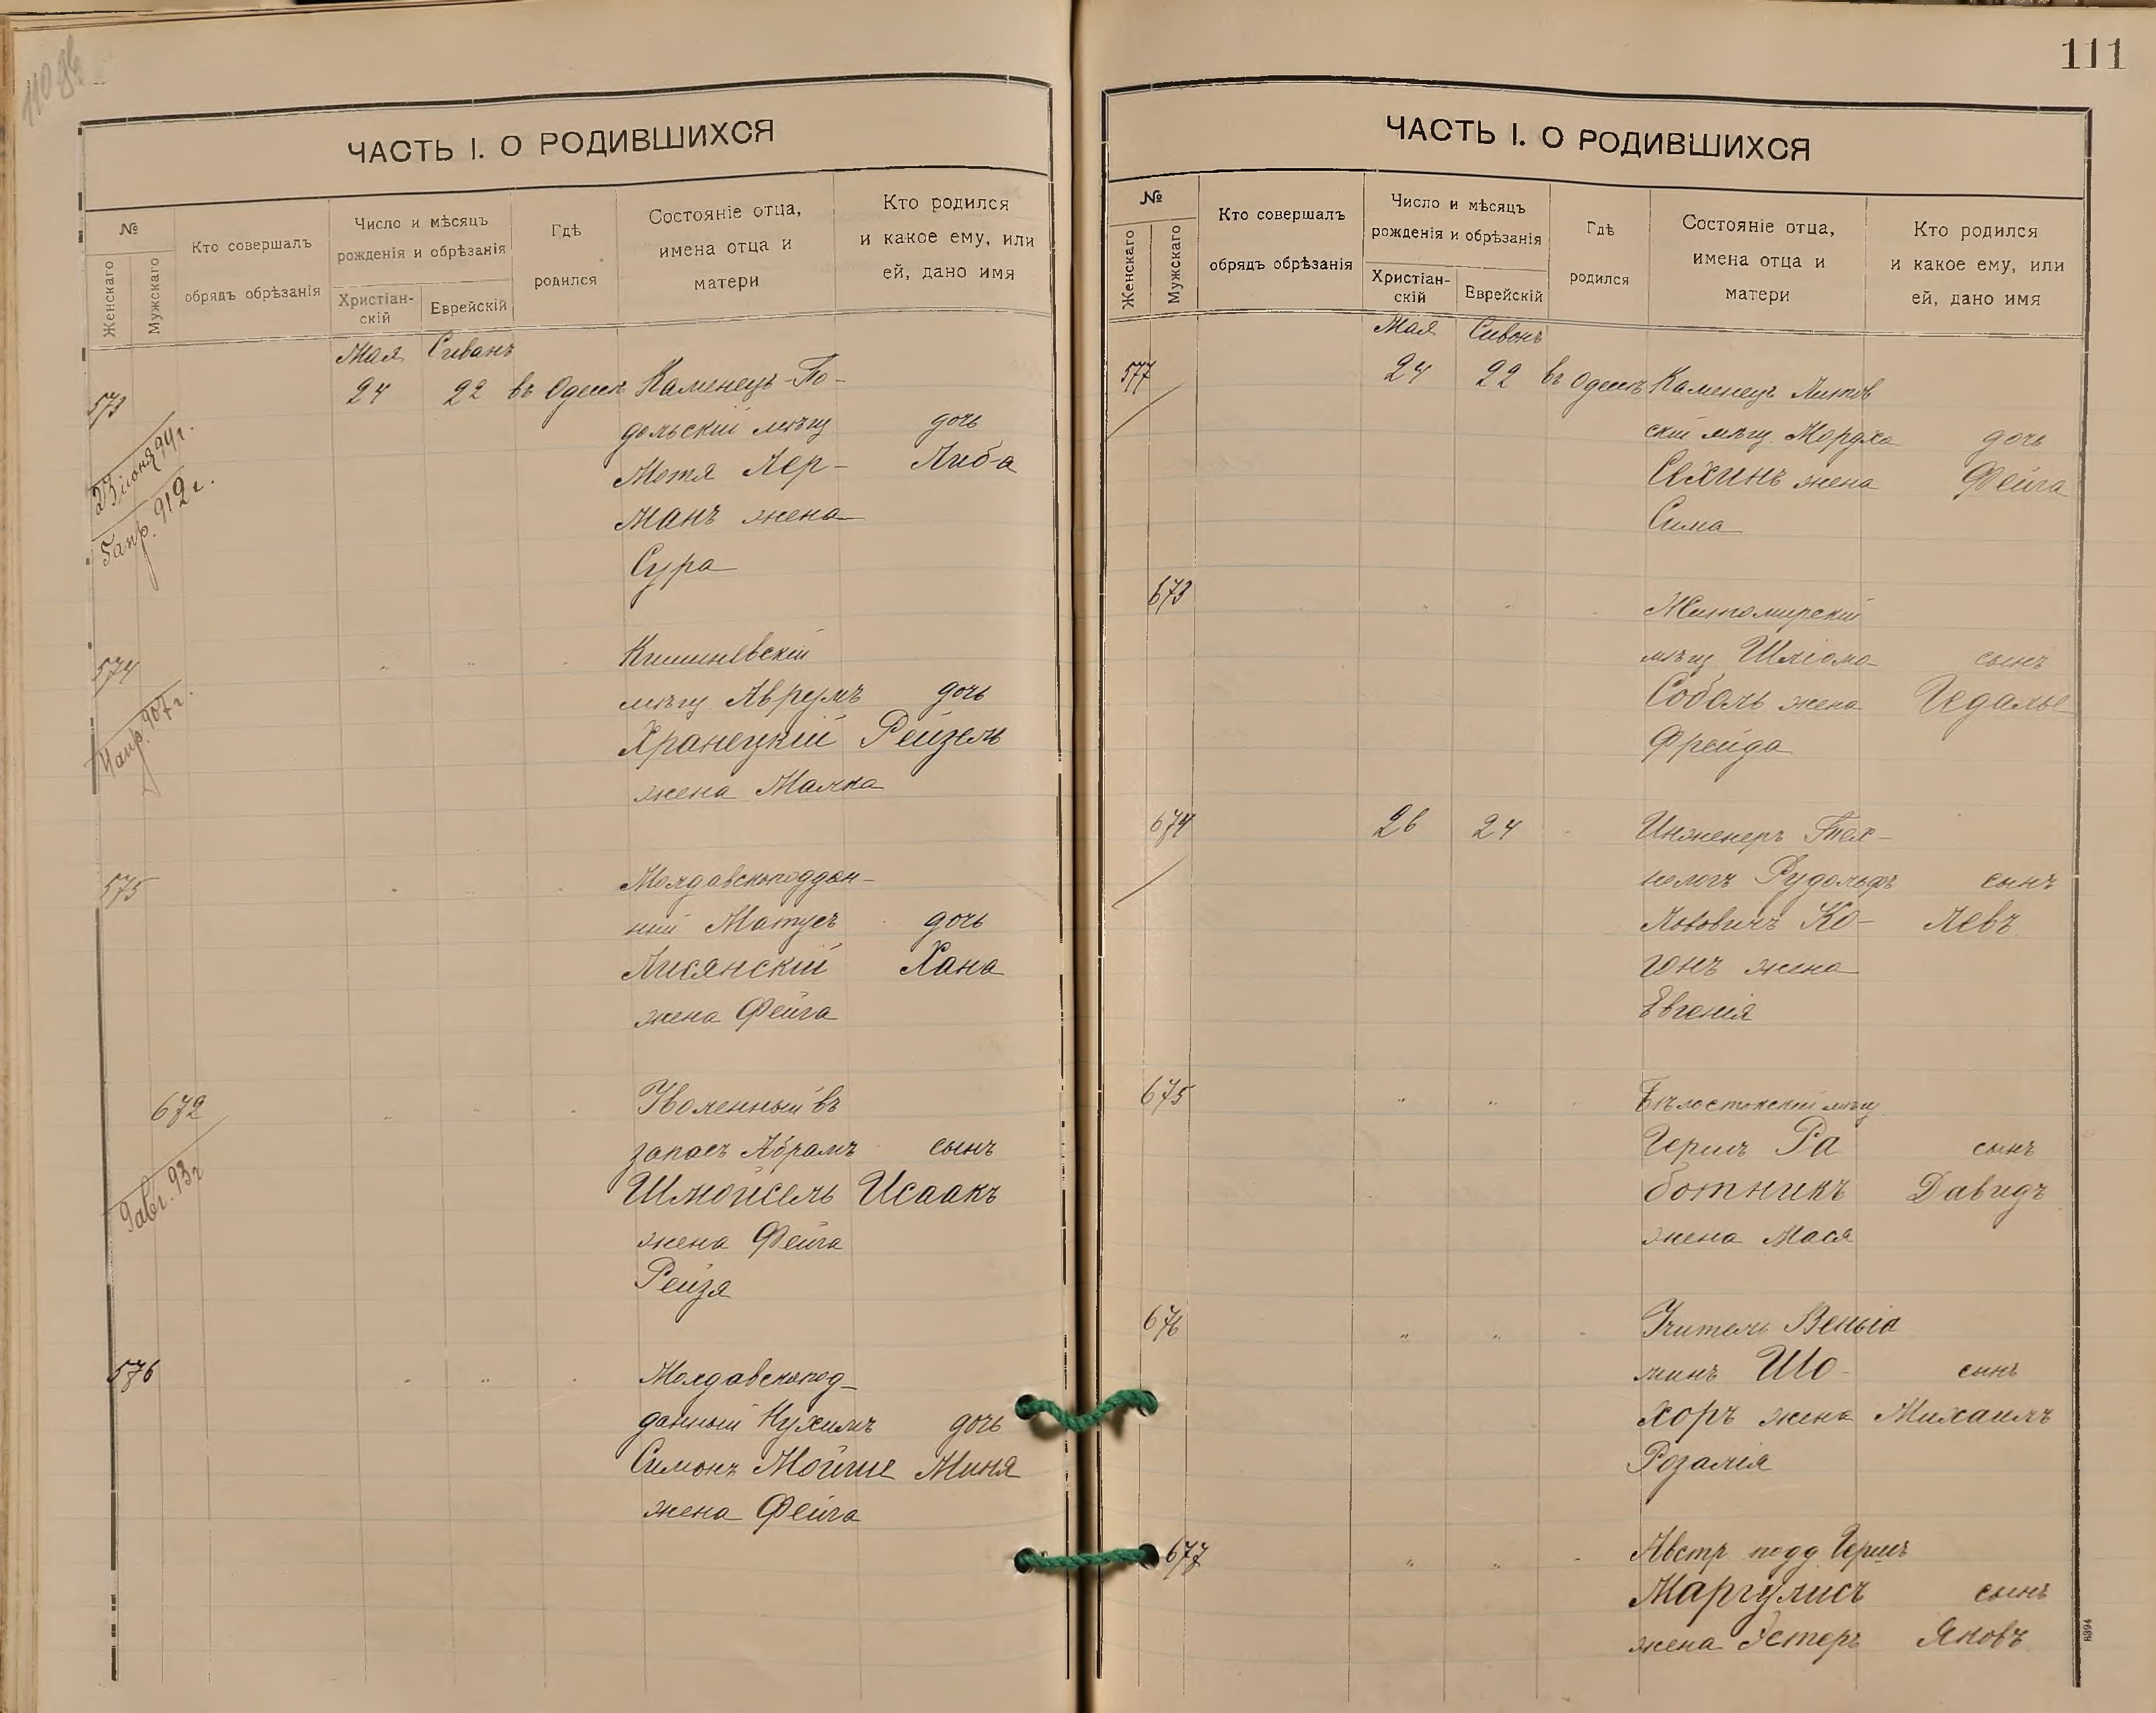 110 об.
ЧАСТЬ I. О РОДИВШИХСЯ
№
Женскаго
Мужскаго
Кто совершалъ
обрядъ обрѣзанія
Число и мѣсяцъ
рожденія и обрѣзанія
Христіан-
скій
Еврейскій
Гдѣ
родился
Состояніе отца,
имена отца и
матери
Кто родился
и какое ему, или
ей, дано имя
Мая Сиванъ
573 24 22 въ Одессѣ Каменецъ-По-
дольскій мѣщ дочь
Мотя Лер- Либа
манъ жена
Сура
23 іюня 94 г.
5 апр. 912 г.
574 " " " Кишиневскій
мѣщ Аврумъ дочь
Хранецкій Рейзель
жена Малка
4 апр. 907 г.
575 " " " Молдавскоподдан-
ный Матусъ дочь
Лисянскій Хана
жена Фейга
672 " " " Уволенный въ
запасъ Абрамъ сынъ
Шмойсель Исаакъ
жена Фейга
Рейзя
9 авг. 93 г
576 " " " Молдавскопод-
данный Нухимъ дочь
Симонъ Мойше Миня
жена Фейга
111
ЧАСТЬ I. О РОДИВШИХСЯ
№
Женскаго
Мужскаго
Кто совершалъ
обрядъ обрѣзанія
Число и мѣсяцъ
рожденія и обрѣзанія
Христіан-
скій
Еврейскій
Гдѣ
родился
Состояніе отца,
имена отца и
матери
Кто родился
и какое ему, или
ей, дано имя
Мая Сивонъ
577 24 22 въ Одессѣ Каменецъ Литов
скій мѣщ Мордхо дочь
Сехинъ жена Фейга
Сима
673 " " " Житомирскій
мѣщ Шліомо сынъ
Соболь жена Гедалье
Фрейда
674 26 24 " Инженеръ Тех-
нологъ Рудольфъ сынъ
Львовичъ Ко- Левъ
гонъ жена
Евгенія
675 " " " Бѣлостокскій мѣщ
Гершъ Ра сынъ
ботникъ Давидъ
жена Мася
676 " " " Учитель Веньіа
минъ Шо- сынъ
хоръ жена Михаилъ
Розалія
677 " " " Австр подд Гершъ
Маргулисъ сынъ
жена Эстеръ Яковъ